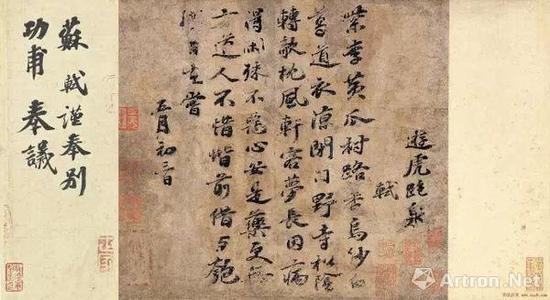 遊虎跑泉
軾
紫李黃瓜村路香烏紗白
葛道衣涼閉門野寺松陰
轉欹枕風軒客夢長因病
得閑殊不惡心安是藥更無
方道人不惜階前借与匏
樽自在嘗
五月初
蘇軾謹奉別
功甫奉議
Artron.Net